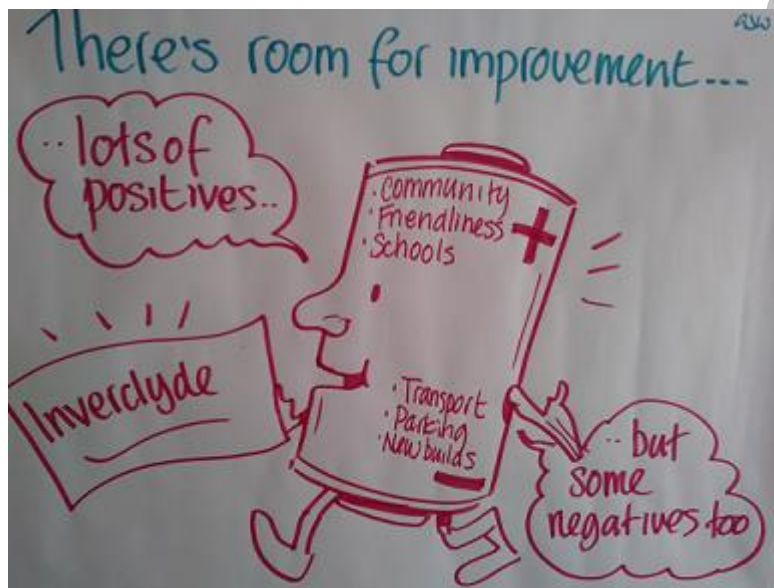 There's room for improvement...
..lots of
positives..
• Community
• Friendliness
• Schools
+
Inverclyde
• Transport
• Parking
• New builds
-
..but
some
negatives too